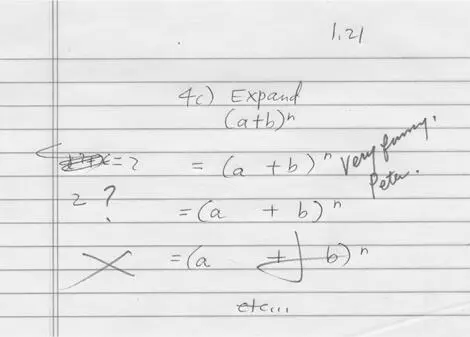 1.21
4c) Expand
(a+b)ⁿ
=2 = (a +b)ⁿ Very funny.
Peter.
2 ? =(a + b)ⁿ
=(a + b)ⁿ
etc...